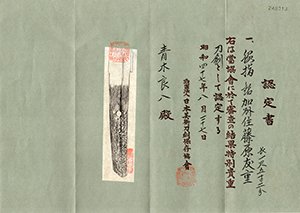 認定書
一、脇指 加州住藤原友重
長一尺五寸二分
右は當協會に於て審査の結果特別貴重
刀劍として認定する
昭和四十七年八月二十七日
財團法人日本美術刀劍保存協會
青木良八殿